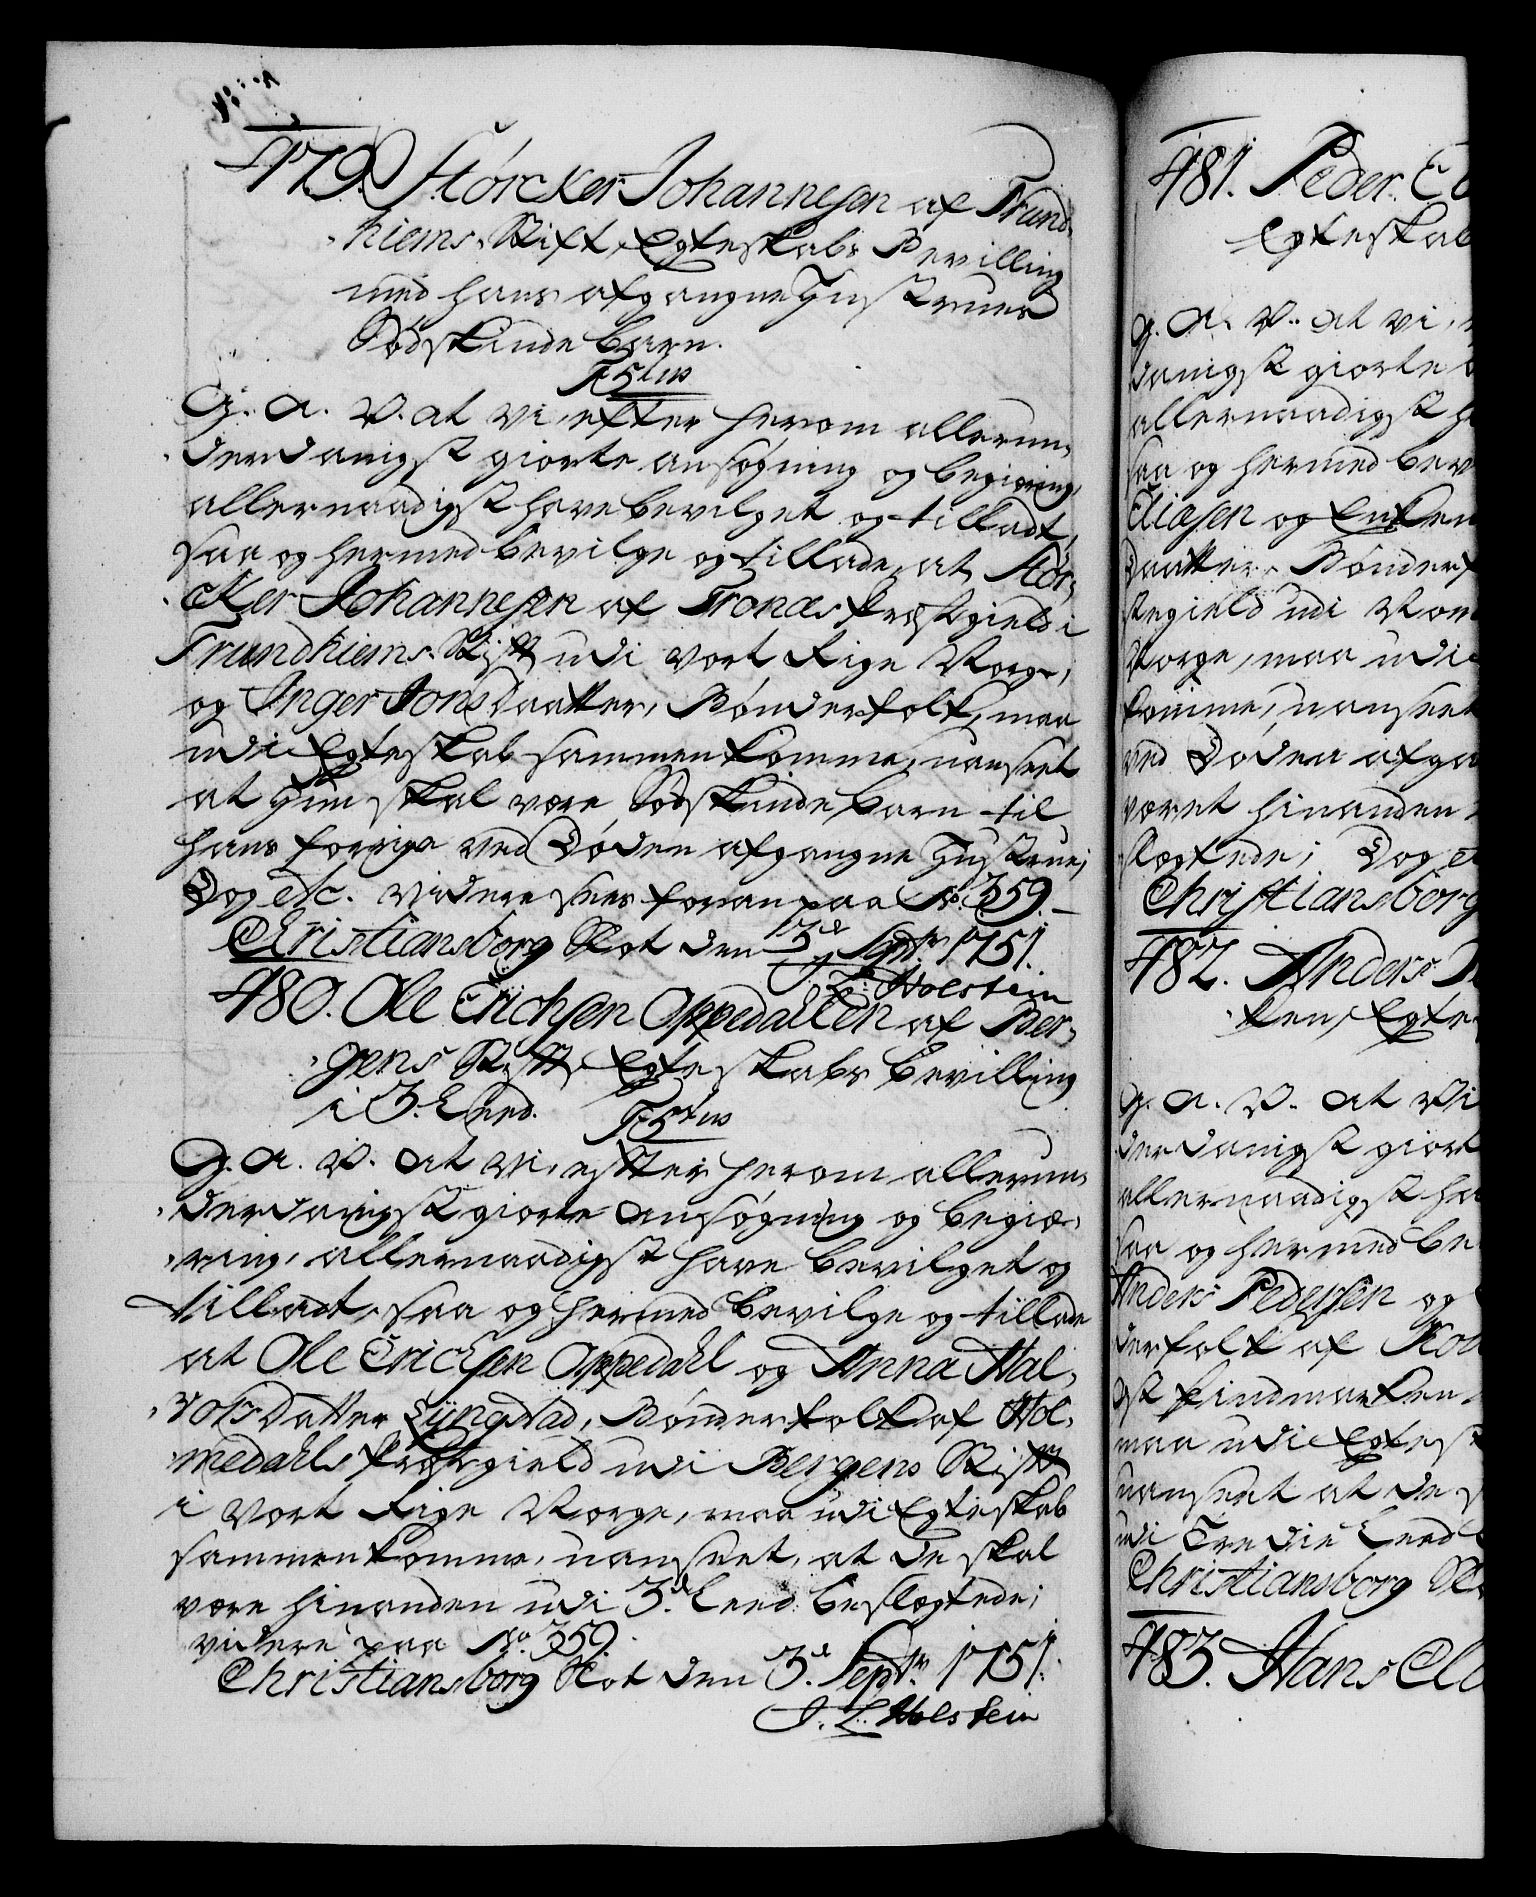 479. Størcker Johannesen af Trund-
hiems Stift, Egteskabs Bevilling
med hans afgangne Hustrues
Sødskinde barn.
G. A. V. at vi, efter herom allerun-
derdanigst giorte ansøgning og begiering,
allernaadigst have bevilget og tilladt,
saa og hermed bevilge og tillade, at Stør-
cker Johannesen af Tronæs Præstgield i
Trundhiems Stift udi vort Rige Norge,
og Inger Jons Daatter, Bønderfolk, maa
udi Egteskab sammen komme, uanseet
at Hun skal være Sødskinde barn til
hans forrige ved Døden afgangne Hustrue;
Dog etc. videre sees foran paa No. 359.
Christiansborg Slot den 3d Septr. 1751.
J. L. Holstein
480. Ole Erichsen Oppedahlen af Ber-
gens Stift, Egteskabs Bevilling
i 3. Leed.
G. A. V. at vi, efter herom allerun-
derdanigst giorte ansøgning og begiæ-
ring, allernaadigst have bevilget og
tilladt, saa og hermed bevilge og tillade
at Ole Erichsen Oppedahl og Anna Hal-
vors Datter Lyngstad, Bønderfolk af Hol-
medahls Præstegield udi Bergens Stift
i vort Rige Norge, maa udi Egteskab
sammen komme, uanseet, at de skal
være hinanden udi 3d. Leed beslægtede;
videre paa No. 359.
Christiansborg Slot den 3d. Septr. 1751.
J. L. Holstein
481. Peder
Egteskab
G. A. V. at vi,
danigst giorte
allernaadigst
saa og hermed bev
Eliæsen og Enken
Daatter, Bønderf
stegield udi
Norge, maa udi
komme, uanseet
ved Døden afga
været hinanden
slægtede; Dog et
Christiansborg
482. Anders
ken, Egte
G. A. V. at vi
derdanigst giort
allernaadigst ha
saa og hermed be
Anders Pedersen og
derfolk af
Ost Findmarken
maa udi Egtesk
uanseet at de s
udi Tredie Leed
Christiansborg Sl
483. Hans